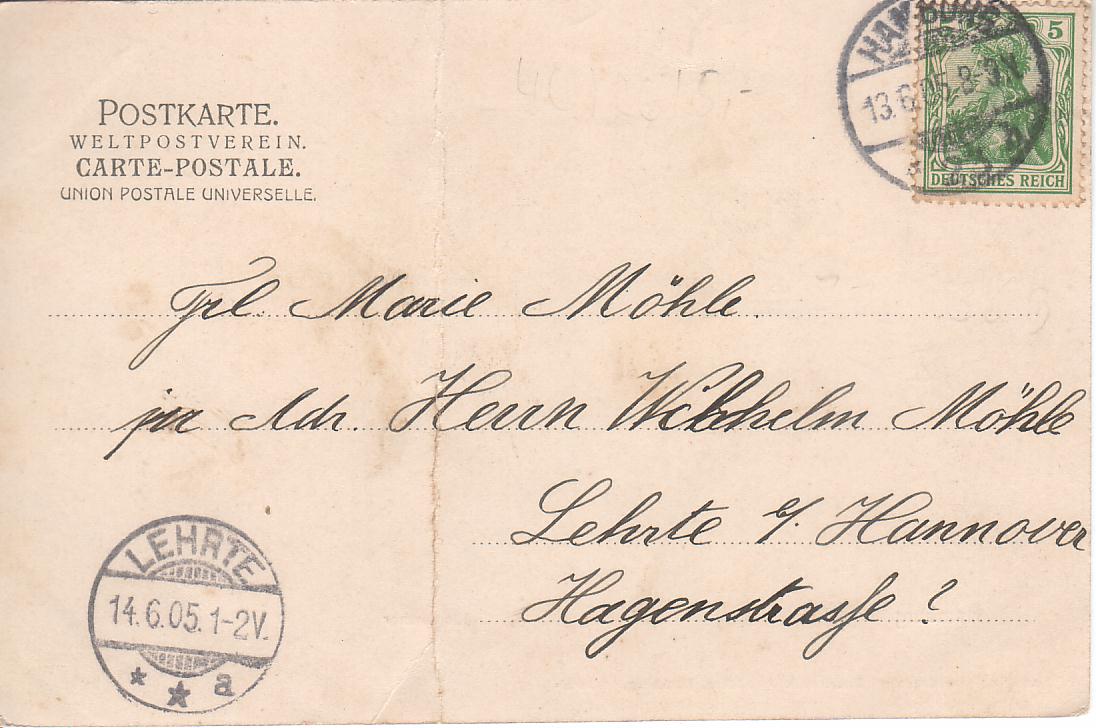 POSTKARTE.
WELTPOSTVEREIN.
CARTE-POSTALE.
UNION POSTALE UNIVERSELLE.
HAMBURG
13.6.05. 8-9N
5
DEUTSCHES REICH
Frl. Marie Möhle.
pr Adr. Herrn Wilhelm Möhle
Lehrte b/ Hannover
Hagenstraße ?
LEHRTE
14.6.05. 1-2V.
* * a